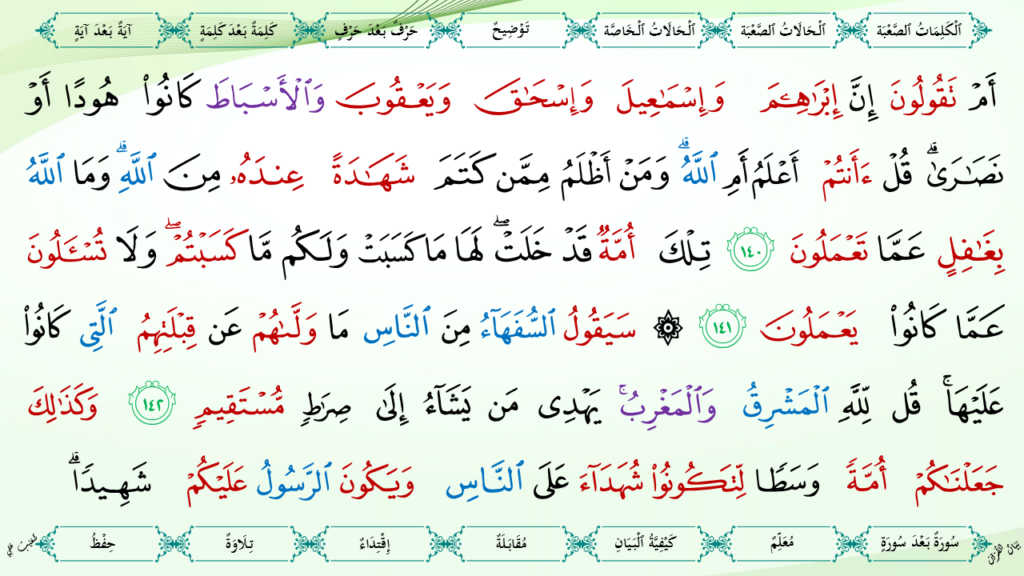 اَلْكَلِمَاتُ الصَّعْبَة اَلْحَالَاتُ الصَّعْبَة اَلْحَالَاتُ الْخَاصَّة تَوْضِيحٌ حَرْفٌ بَعْدَ حَرْفٍ كَلِمَةٌ بَعْدَ كَلِمَةٍ آيَةٌ بَعْدَ آيَةٍ
أَمۡ تَقُولُونَ إِنَّ إِبۡرَٰهِـۧمَ وَإِسۡمَٰعِيلَ وَإِسۡحَٰقَ وَيَعۡقُوبَ وَٱلۡأَسۡبَاطَ كَانُواْ هُودًا أَوۡ
نَصَٰرَىٰۗ قُلۡ ءَأَنتُمۡ أَعۡلَمُ أَمِ ٱللَّهُۗ وَمَنۡ أَظۡلَمُ مِمَّن كَتَمَ شَهَٰدَةً عِندَهُۥ مِنَ ٱللَّهِۗ وَمَا ٱللَّهُ
بِغَٰفِلٍ عَمَّا تَعۡمَلُونَ ١٤٠ تِلۡكَ أُمَّةٞ قَدۡ خَلَتۡۖ لَهَا مَا كَسَبَتۡ وَلَكُم مَّا كَسَبۡتُمۡۖ وَلَا تُسۡـَٔلُونَ
عَمَّا كَانُواْ يَعۡمَلُونَ ١٤١ ۞ سَيَقُولُ ٱلسُّفَهَآءُ مِنَ ٱلنَّاسِ مَا وَلَّىٰهُمۡ عَن قِبۡلَتِهِمُ ٱلَّتِي كَانُواْ
عَلَيۡهَاۚ قُل لِّلَّهِ ٱلۡمَشۡرِقُ وَٱلۡمَغۡرِبُۚ يَهۡدِي مَن يَشَآءُ إِلَىٰ صِرَٰطٖ مُّسۡتَقِيمٖ ١٤٢ وَكَذَٰلِكَ
جَعَلۡنَٰكُمۡ أُمَّةٗ وَسَطٗا لِّتَكُونُواْ شُهَدَآءَ عَلَى ٱلنَّاسِ وَيَكُونَ ٱلرَّسُولُ عَلَيۡكُمۡ شَهِيدٗاۗ
سُورَةٌ بَعْدَ سُورَةٍ مُعَلِّمٌ كَيْفِيَّةُ الْبَيَانِ مُقَابَلَةٌ إِقْتِدَاءٌ تِلَاوَةٌ حِفْظٌ